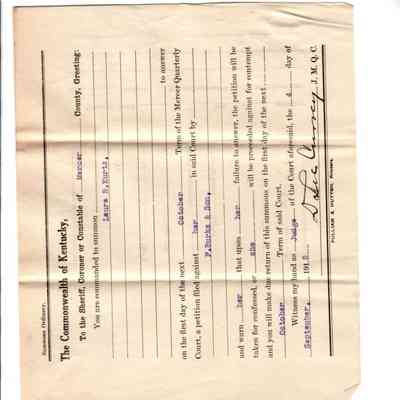 Summons Ordinary.
The Commonwealth of Kentucky,
To the Sheriff, Coroner or Constable of Mercer County, Greeting:
You are commanded to summon
Laura B. Kurtz,
to answer
on the first day of the next October Term of the Mercer Quarterly
Court, a petition filed against her in said Court by
P. Burks & Son,
and warn her that upon her failure to answer, the petition will be
taken for confessed, or she will be proceeded against for contempt
and you will make due return of this summons on the first day of the next
October Term of said Court.
Witness my hand as Judge of the Court aforesaid, the 4 day of
September, 191 J. M. Q. C.
PULLIAM & HUTTON, PRINTERS